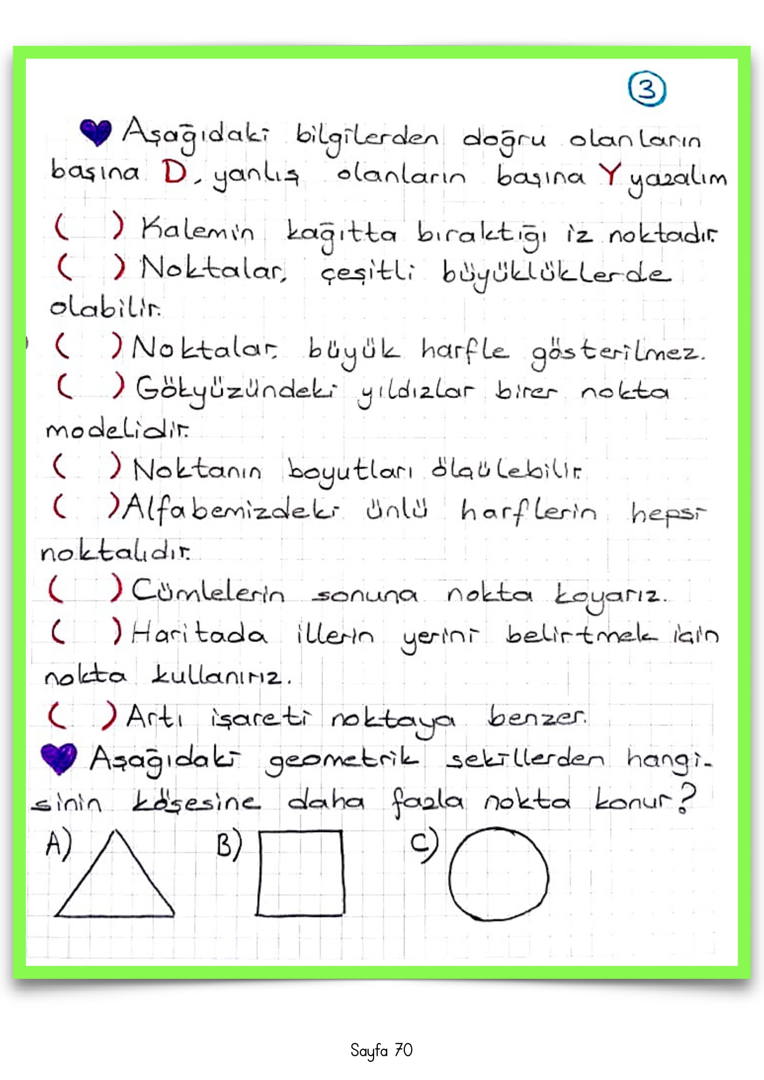 3
Aşağıdaki bilgilerden doğru olanların
başına D, yanlış olanların başına Y yazalım
( ) Kalemin kağıtta bıraktığı iz noktadır.
( ) Noktalar, çeşitli büyüklüklerde
olabilir.
( ) Noktalar, büyük harfle gösterilmez.
( ) Gökyüzündeki yıldızlar birer nokta
modelidir.
( ) Noktanın boyutları ölçülebilir.
( ) Alfabemizdeki ünlü harflerin hepsi
noktalıdır.
( ) Cümlelerin sonuna nokta koyarız.
( ) Haritada illerin yerini belirtmek için
nokta kullanırız.
( ) Artı işareti noktaya benzer.
Aşağıdaki geometrik şekillerden hangi-
sinin köşesine daha fazla nokta konur?
A) B) C)
Sayfa 70